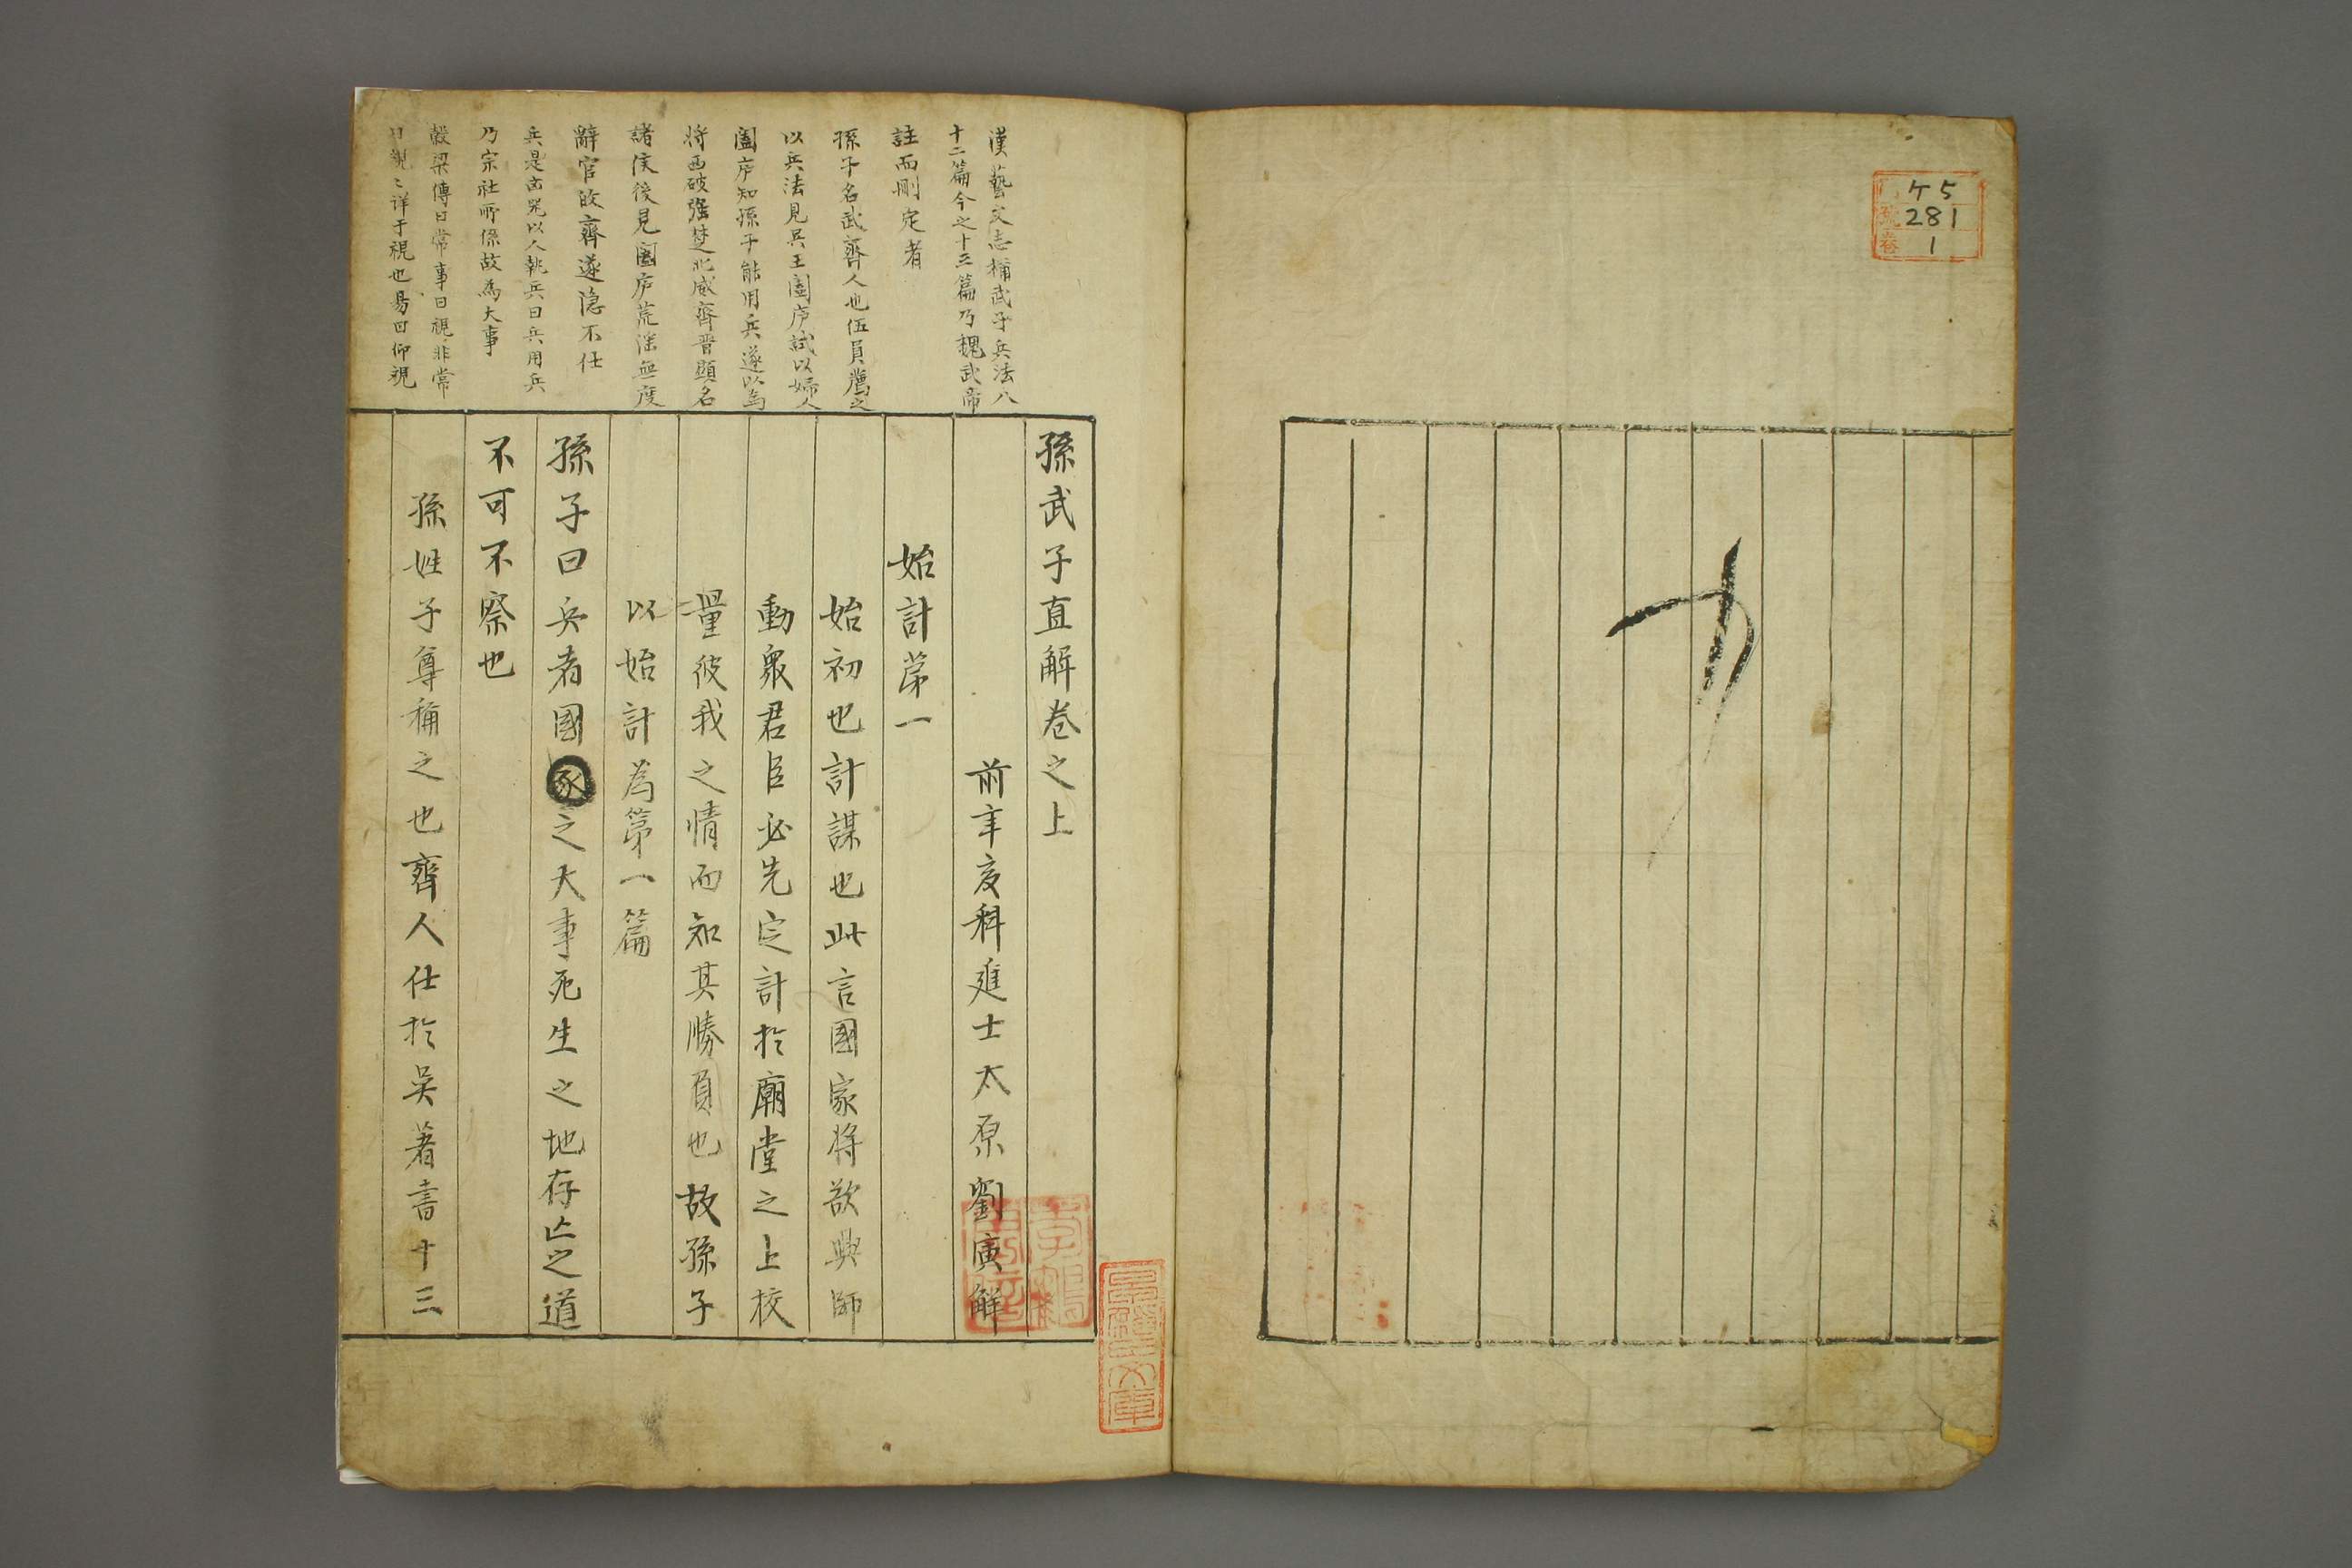 ケ5
號 281
卷 1
漢藝文志稱武子兵法八
十二篇今之十三篇乃魏武帝
註而刪定者
孫子名武齊人也伍員薦之
以兵法見吳王闔庐試以婦人
闔庐知孫子能用兵遂以為
将西破强楚北威齊晋顯名
諸侯後見闔庐荒滛無度
辭官故齊遂隐不仕
兵是凶器以人執兵曰兵用兵
乃宗社所係故為大事
穀梁傳曰常事曰視非常
曰觀〻詳于視也易曰仰視
孫武子直解卷之上
前辛亥科進士太原劉寅解
始計苐一
始初也計謀也此言國家将欲興師
動衆君臣必先定計於廟堂之上校
量彼我之情而知其勝負也故孫子
以始計為苐一篇
孫子曰兵者國家之大事死生之地存亡之道
不可不察也
孫姓子尊稱之也齊人仕於吳著書十三